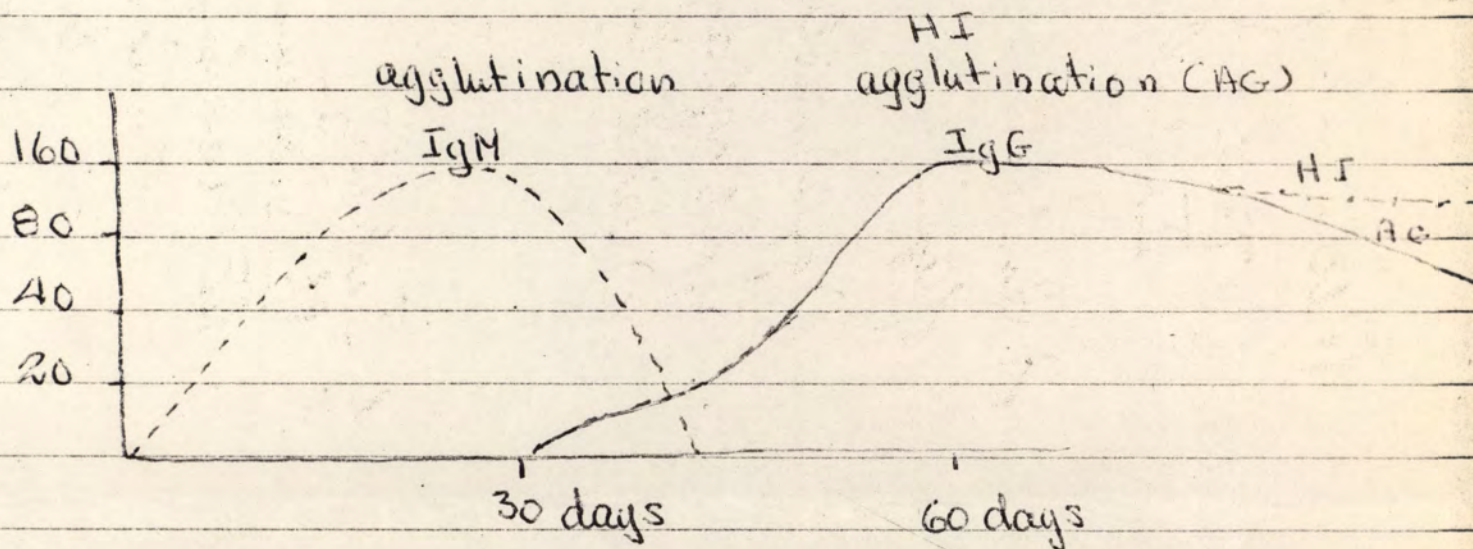 HI
agglutination agglutination (AG)
160 IgM IgG HI
80 AG
40
20
30 days 60 days